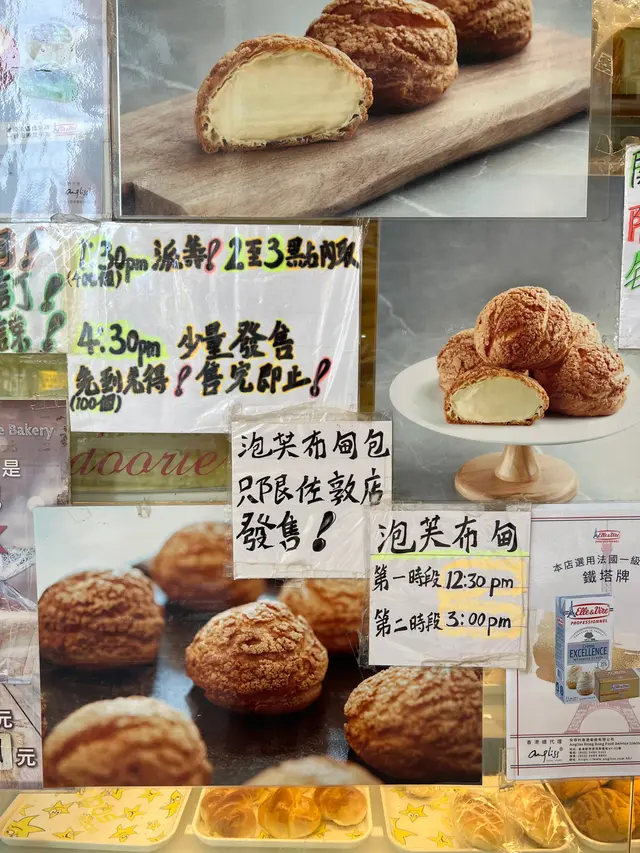 1:30pm 派籌! 2至3點內取
4:30pm 少量發售
先到先得!售完即止!
(100個)
訂!
Bakery
是
泡芙布甸包
只限佐敦店
發售!
泡芙布甸
第一時段 12:30 pm
第二時段 3:00 pm
Elle & Vire
本店選用法國一級
鐵塔牌
Elle & Vire
PROFESSIONNEL
EXCELLENCE
香港總代理
angliss
元
元